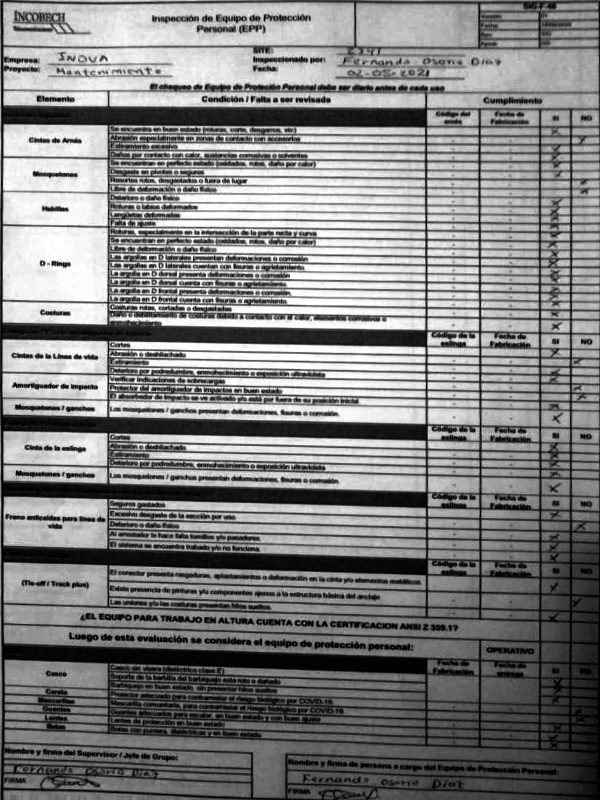 INCOBECH
Inspección de Equipo de Protección
Personal (EPP)
SIG-F-46
Versión 01
Fecha
Rev. SIG
Empresa: INOVA
Proyecto: Mantenimiento
SITE: 2341
Inspeccionado por: Fernando Osorio Diaz
Fecha: 02-05-2021
El chequeo de Equipo de Protección Personal debe ser diario antes de cada uso
Elemento Condición / Falta a ser revisada Cumplimiento
Código del arnés Fecha de Fabricación SI NO
Cintas de Arnés
Se encuentra en buen estado (roturas, corte, desgarros, etc)
Abrasión especialmente en zonas de contacto con accesorios
Estiramiento excesivo
Daños por contacto con calor, sustancias corrosivas o solventes
Mosquetones
Se encuentran en perfecto estado (oxidados, rotos, daño por calor)
Desgaste en pivotes o seguros
Resortes rotos, desgastados o fuera de lugar
Libre de deformación o daño físico
Hebillas
Deterioro o daño físico
Roturas o labios deformados
Lengüetas deformadas
Falta de ajuste
D - Rings
Roturas, especialmente en la intersección de la parte recta y curva
Se encuentran en perfecto estado (oxidados, rotos, daño por calor)
Libre de deformación o daño físico
Las argollas en D laterales presentan deformaciones o corrosión
Las argollas en D laterales cuentan con fisuras o agrietamiento
La argolla en D dorsal presenta deformaciones o corrosión
La argolla en D dorsal cuenta con fisuras o agrietamiento
La argolla en D frontal presenta deformaciones o corrosión
La argolla en D frontal cuenta con fisuras o agrietamiento
Costuras
Costuras rotas, cortadas o desgastadas
Daño o debilitamiento de costuras debido a contacto con el calor, elementos corrosivos o enmohecimiento
Código de la eslinga Fecha de Fabricación SI NO
Cintas de la Línea de vida
Cortes
Abrasión o deshilachado
Estiramiento
Deterioro por podredumbre, enmohecimiento o exposición ultravioleta
Amortiguador de impacto
Verificar indicaciones de sobrecargas
Protector del amortiguador de impactos en buen estado
El absorbedor de impacto se ve activado y/o está por fuera de su posición inicial
Mosquetones / ganchos
Los mosquetones / ganchos presentan deformaciones, fisuras o corrosión.
Código de la eslinga Fecha de Fabricación SI NO
Cinta de la eslinga
Cortes
Abrasión o deshilachado
Estiramiento
Deterioro por podredumbre, enmohecimiento o exposición ultravioleta
Mosquetones / ganchos
Los mosquetones / ganchos presentan deformaciones, fisuras o corrosión.
Código de la eslinga Fecha de Fabricación SI NO
Freno anticaídas para línea de vida
Seguros gastados
Excesivo desgaste de la sección por uso
Deterioro o daño físico
Al arrestador le hace falta tornillos y/o pasadores
El sistema se encuentra trabado y/o no funciona
Código de la eslinga Fecha de Fabricación SI NO
(Tie-off / Track plus)
El conector presenta rasgaduras, aplastamientos o deformación en la cinta y/o elementos metálicos
Existe presencia de pinturas y/u componentes ajenos a la estructura básica del anclaje
Las uniones y/o las costuras presentan hilos sueltos
¿EL EQUIPO PARA TRABAJO EN ALTURA CUENTA CON LA CERTIFICACION ANSI Z 359.1?
Luego de esta evaluación se considera el equipo de protección personal: OPERATIVO
Fecha de Fabricación Fecha de entrega SI NO
Casco
Casco sin visera (dieléctrico clase E)
Soporte de la barbilla del barbiquejo esta roto o dañado
Barbiquejo en buen estado, sin presentar hilos sueltos
Careta
Protector adecuado para contrarrestar el riesgo biológico por COVID-19.
Mascarillas
Mascarilla comunitaria, para contrarrestar el riesgo biológico por COVID-19.
Guantes
Guantes adecuados para escalar, en buen estado y con buen ajuste
Lentes
Lentes de protección en buen estado
Botas
Botas con puntera, dieléctricas y en buen estado
Nombre y firma del Supervisor / Jefe de Grupo:
Fernando Osorio Diaz
FIRMA
Nombre y firma de persona a cargo del Equipo de Protección Personal:
Fernando Osorio Diaz
FIRMA